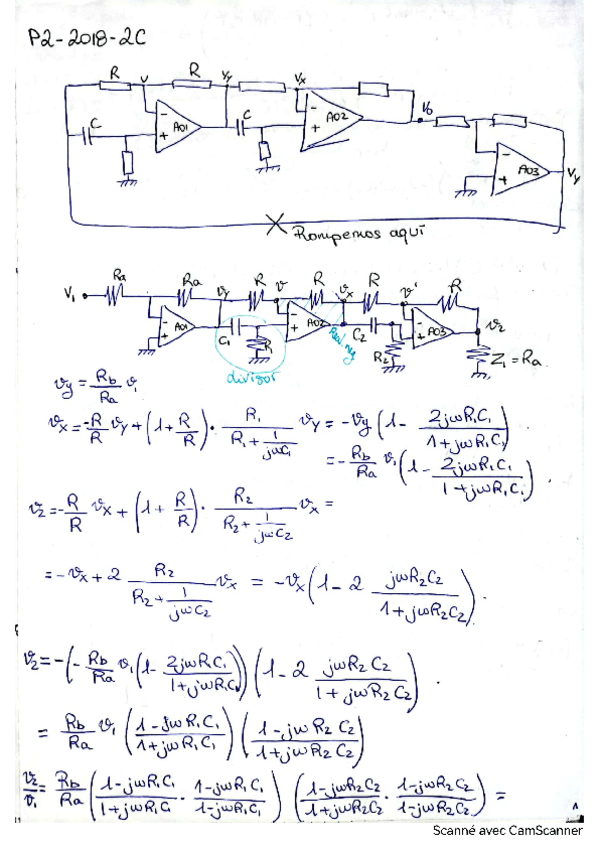 P2-2018-2C
R V R Vy Vx
C AO1 C AO2 Vo AO3 Vy
Rompemos aquí
V₁ Ra Ra Vy R V R Vx R V' R
AO1 C₁ R₁ AO2 C₂ R₂ AO3 V₂
Z₁ = Ra
divisor
Vy = Rb/Ra V₁
Vx = -R/R Vy + (1 + R/R) · R₁/(R₁ + 1/jωC₁) Vy = -Vy (1 - 2jωR₁C₁/(1+jωR₁C₁))
= -Rb/Ra V₁ (1 - 2jωR₁C₁/(1+jωR₁C₁)).
V₂ = -R/R Vx + (1 + R/R) · R₂/(R₂ + 1/jωC₂) Vx =
= -Vx + 2 R₂/(R₂ + 1/jωC₂) Vx = -Vx (1 - 2 jωR₂C₂/(1+jωR₂C₂)).
V₂ = -(-Rb/Ra V₁ (1 - 2jωR₁C₁/(1+jωR₁C₁))) (1 - 2 jωR₂C₂/(1+jωR₂C₂)).
= Rb/Ra V₁ ((1-jωR₁C₁)/(1+jωR₁C₁)) ((1-jωR₂C₂)/(1+jωR₂C₂))
V₂/V₁ = Rb/Ra ((1-jωR₁C₁)/(1+jωR₁C₁) · (1-jωR₁C₁)/(1-jωR₁C₁)) ((1-jωR₂C₂)/(1+jωR₂C₂) · (1-jωR₂C₂)/(1-jωR₂C₂)) =
Scanné avec CamScanner